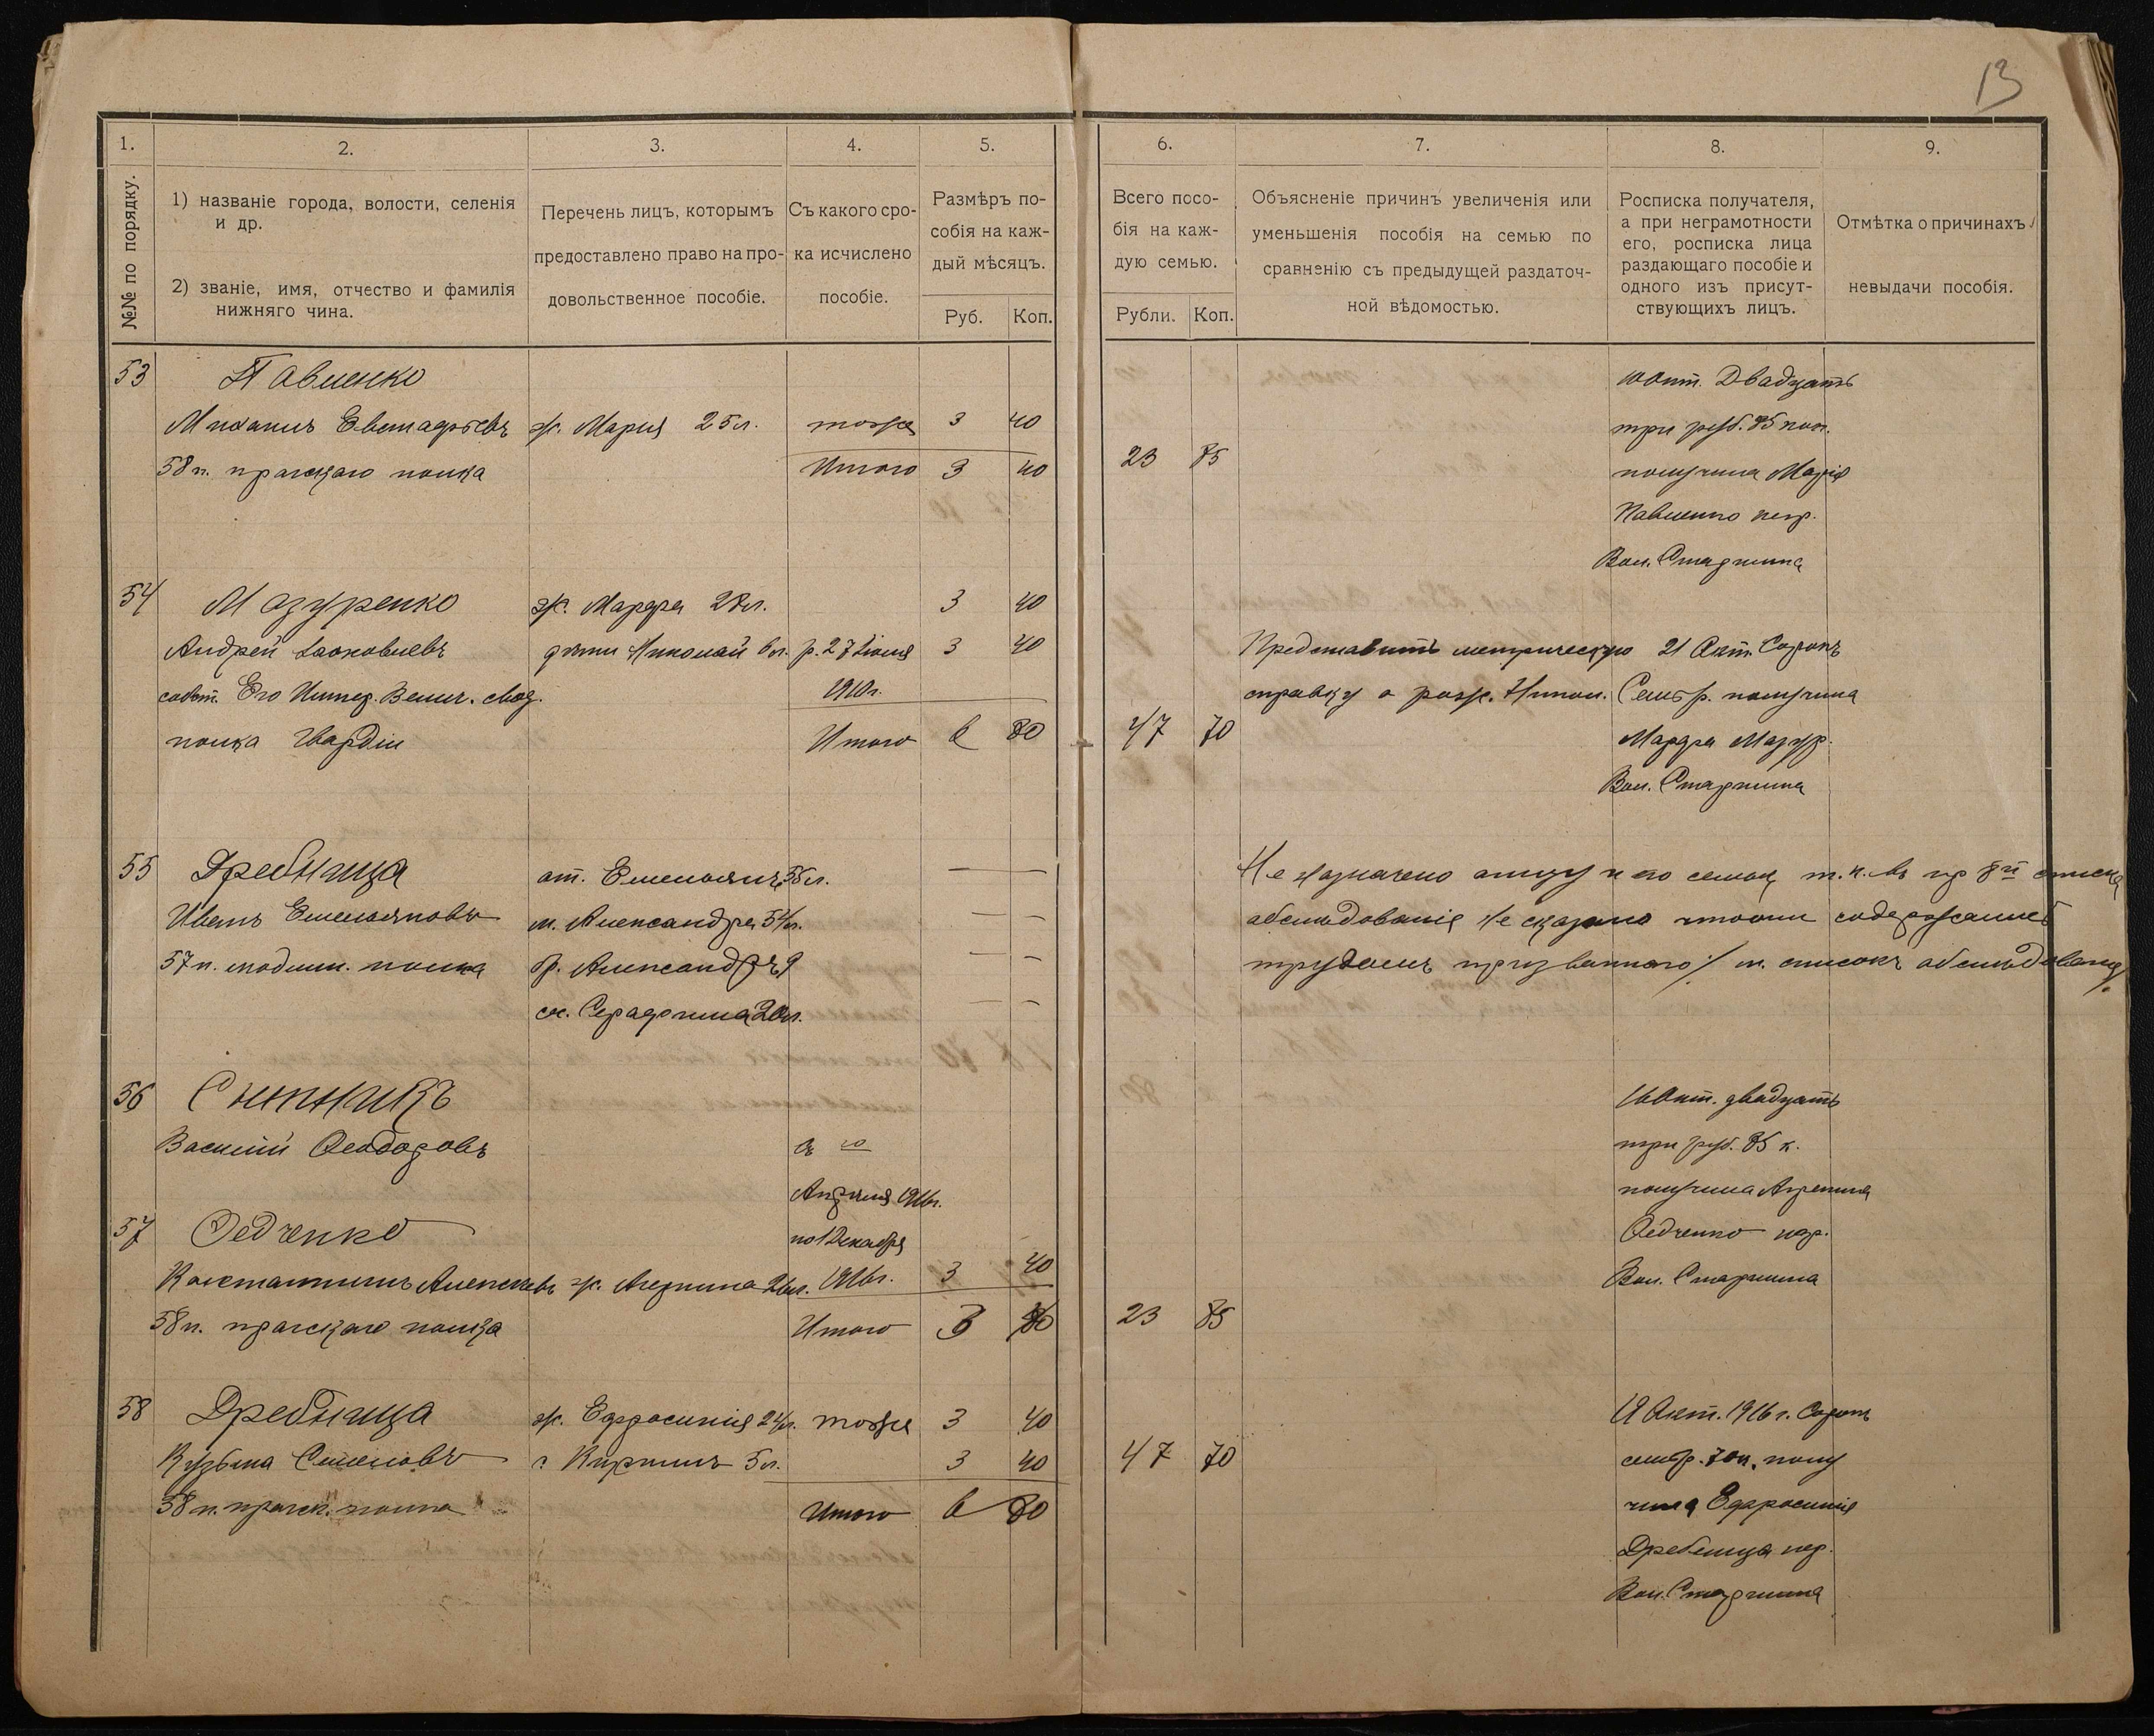 13
1.
2.
3.
4.
5.
6.
7.
8.
9.
№№ по порядку.
1) названіе города, волости, селенія
и др.
2) званіе, имя, отчество и фамилія
нижняго чина.
Перечень лицъ, которымъ
предоставлено право на про-
довольственное пособіе.
Съ какого сро-
ка исчислено
пособіе.
Размѣръ по-
собія на каж-
дый мѣсяцъ.
Руб. Коп.
Всего посо-
бія на каж-
дую семью.
Рубли. Коп.
Объясненіе причинъ увеличенія или
уменьшенія пособія на семью по
сравненію съ предыдущей раздаточ-
ной вѣдомостью.
Росписка получателя,
а при неграмотности
его, росписка лица
раздающаго пособіе и
одного изъ присут-
ствующихъ лицъ.
Отмѣтка о причинахъ
невыдачи пособія.
53 Павленко
Михаилъ Евстафьевъ ж. Марія 25 л. тоже 3 40
58 п. пражскаго полка Итого 3 40
23 85
Окт. Двадцать
три руб. 85 коп.
получила Марія
Павленко негр.
Вол. Старшина
54 Мазуренко ж. Марфа 28 л. 3 40
Андрей дѣти Николай 6 л. р. 27 3 40
собст. Его Импер. Велич. свод. 1910 г.
полка Гвардіи Итого 6 80
47 70
Представить метрическую
справку о рожд. Никол.
21 Окт. Сорокъ
Семь р. получила
Марфа Мазур.
Вол. Старшина
55 Дребница от. Емельянъ 58 л. — —
Иванъ Емельяновъ м. Александра 54 л. — —
57 п. модлин. полка бр. Александръ 9 — —
с. Серафима 20 л. — —
Не назначено отцу и его семьѣ т. к. въ спискѣ
обслѣдованія не сказано чтобы содержались
трудомъ призваннаго /см. списокъ обслѣдованія/.
56 Сытникъ
Василій Ѳеодоровъ
57 Ѳедченко
Апрѣля 1916 г.
по 1 Декабря
Константинъ Алексѣевъ ж. Агрипина 26 л. 1916 г. 3 40
58 п. пражскаго полка Итого 3 40
23 85
16 Окт. двадцать
три руб. 85 к.
получила Агрепина
Ѳедченко негр.
Вол. Старшина
58 Дребница ж. Ефросинія 24 л. тоже 3 40
Кузьма Семеновъ с Кириллъ 5 л. 3 40
58 п. пражск. полка Итого 6 80
47 70
19 Окт. 1916 г. Сорокъ
семь р. 70 к. полу
чила Ефросинія
Дребница нег.
Вол. Старшина